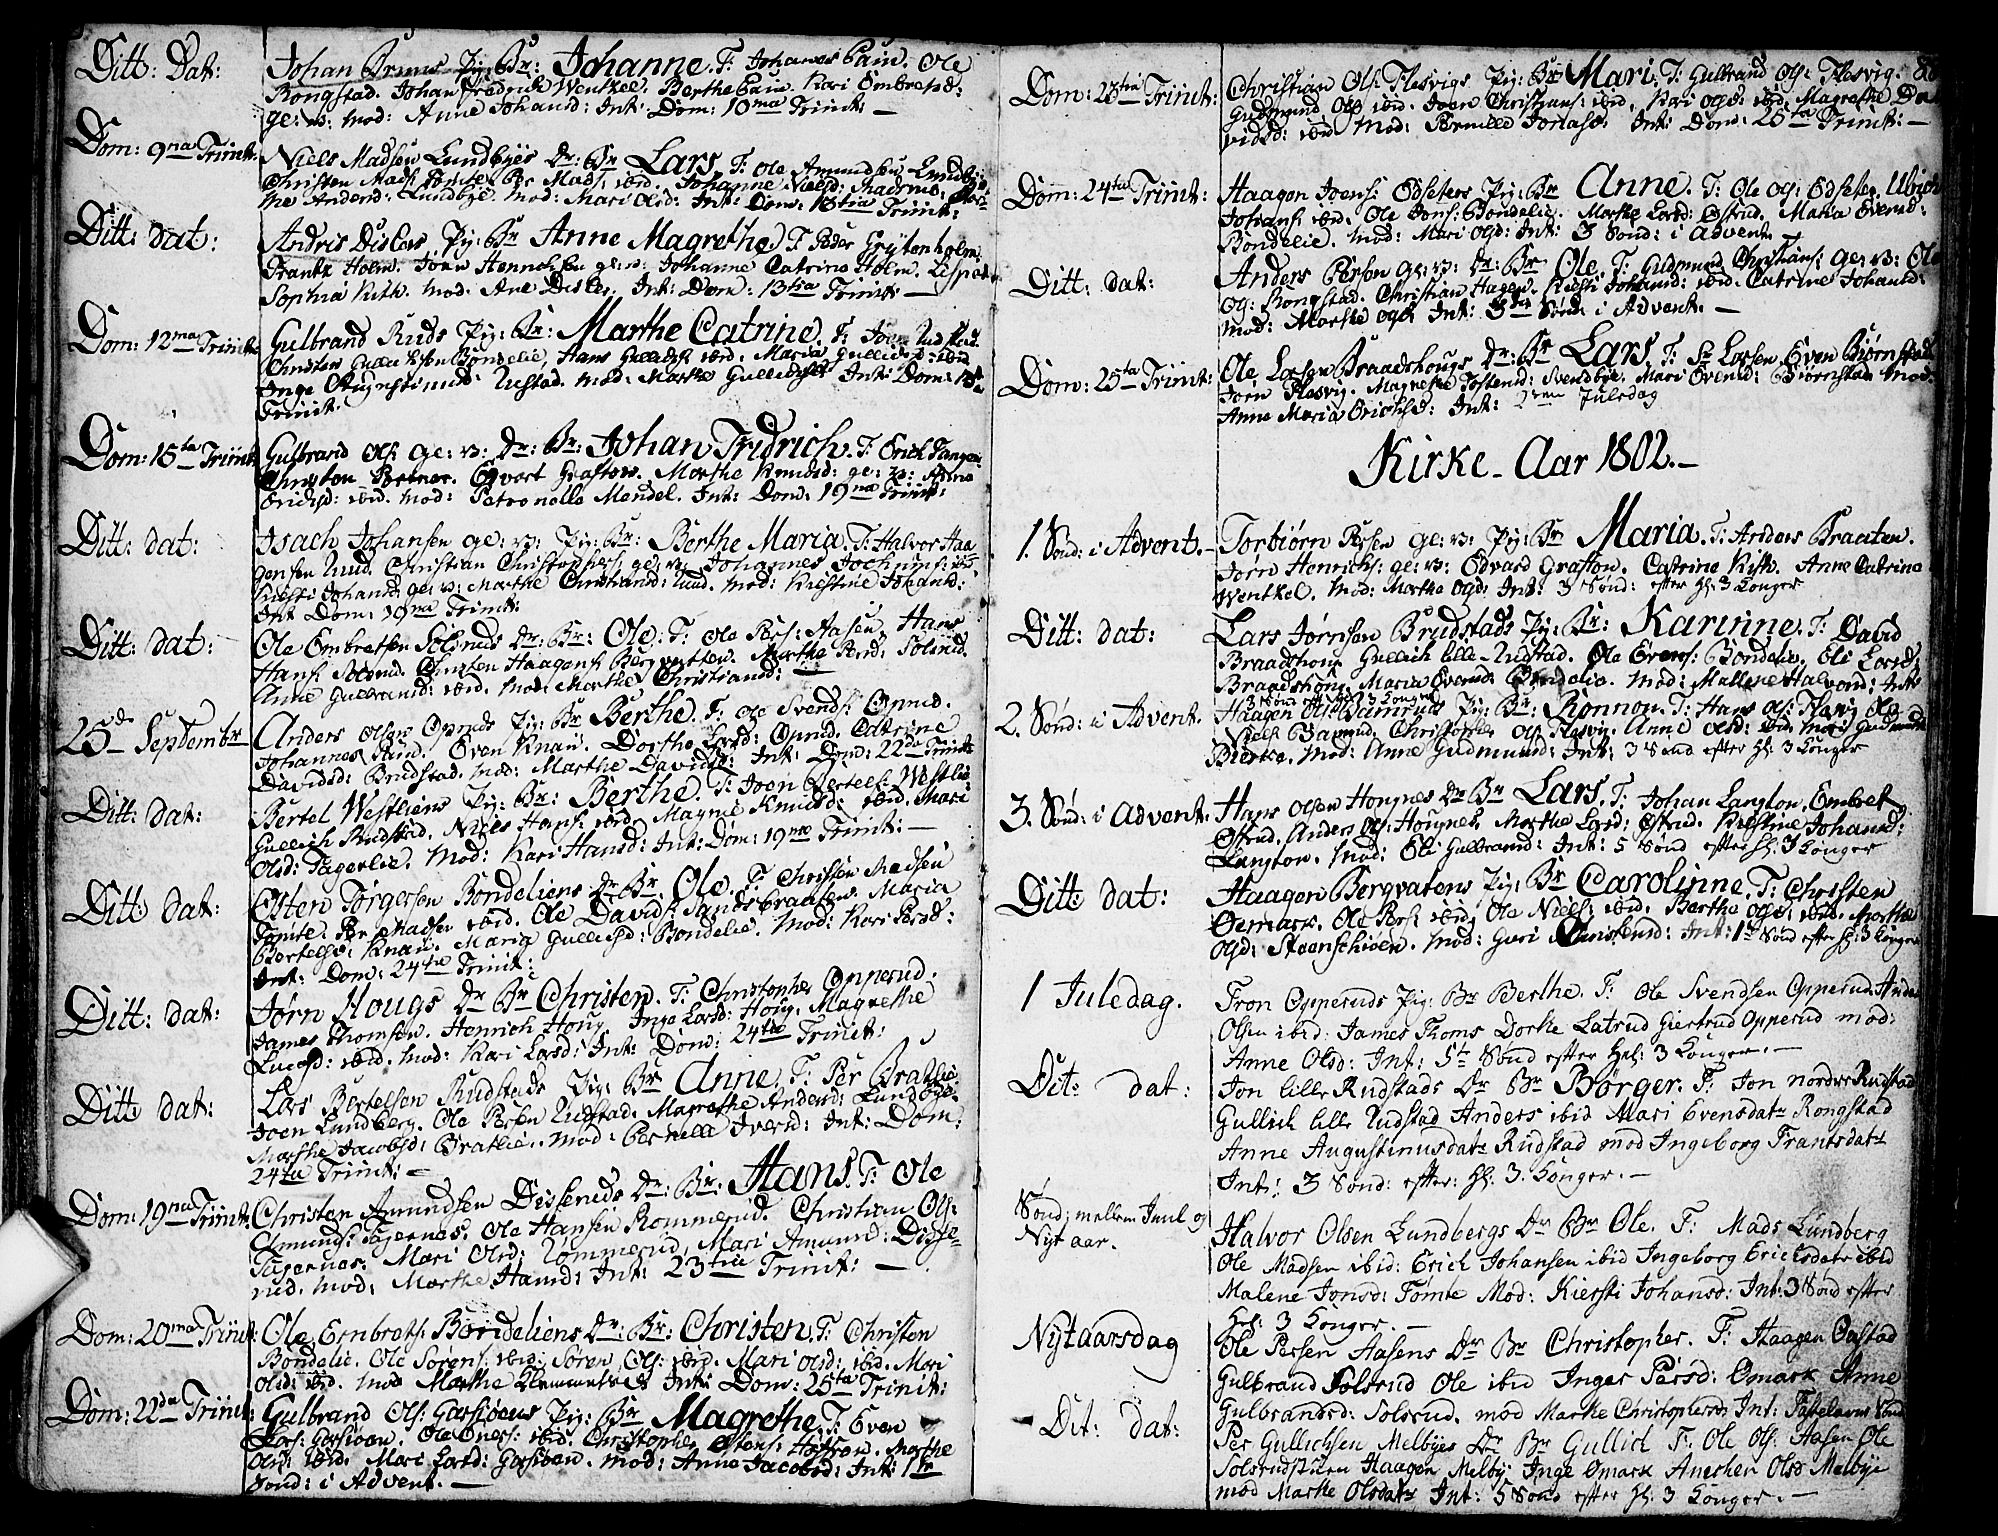 Ditt: Dat:
Johan Bruns Pig: Br: Johanne. T: Johannes Paun. Ole
Rongstad. Johan Fredrich Wentkel. Berthe Paun. Kari Embretsd:
ge: v: mod: Anne Johansd: Int: Dom: 10ma Trinit: —
Dom: 9na Trinit:
Niels Madsen Lundbyes Dr: Br Lars. T: Ole Amundsen Lundby:
Christen Mads: Tomte Per Mads: ibid. Johanne Nielsd:
the Andersd: Lundbye. mod: Mari Olsd: Int: Dom: 13tia Trinit:
Ditt: dat:
Andris Dislers Pig: Br Anne Magrethe T: Peder Grytenholm.
Frantz Holm. Joen Henrichsen ge: v: Johanne Catrina Holm.
Sophia Kith. mod: Ane Disler. Int: Dom: 13tia Trinit: —
Dom: 12ma Trinit:
Gulbrand Ruds Pig: Br: Marthe Catrine. T: Joen Rudstad.
Christen Gullichsen Bondelie. Hans Gullichs: ibid. Maria Gullichsd: ibid
Inge Augustinusd: Rustad. mod: Marthe Gullichsd: Int: Dom: 15
Trinit:
Dom: 15ta Trinit
Gulbrand Ols: ge: v: Dr: Br: Johan Fridrich. T: Erich Tangen
Christen Edvert Grafton. Marthe Knudsd: ge: v: Anne
Erichsd: ibid. mod: Petronelle Mendel. Int: Dom: 19na Trinit:
Ditt: dat:
Isach Johansen ge: v: Pig: Br: Berthe Maria. T: Halvor Haa-
gensen Ruud. Christian Christophers: ge: v: Johannes Jochims:
Kiesti Johansd: ge: v: Marthe Christiansd: Ruud. mod: Kiestine Johansd:
Int: Dom: 19na Trinit:
Ditt: dat:
Ole Embretsen Solsruds Dr: Br: Ole. T: Ole Pers: Aasen. Hans
Hans: Solsrud. Christen Haagens: Bergvatten. Marthe Persd: Solsrud.
Anne Gulbransd: ibid. mod: Marthe Christiansd: —
25de Septembr
Anders Olsen Opruds Pig: Br Berthe. T: Ole Svends: Oprud.
Johannes Paun. Even Knau. Dorthe Oprud. Catrine
Davidsd: Brudstad. mod: Marthe Davidsd: Int: Dom: 22da Trinit:
Ditt: dat:
Bertel Westliens Pig: Br: Berthe. T: Joen Bertels: Westlie
Gullich Rudstad. Niels Hans: ibid. Magnie Knudsd: ibid. Mari
Olsd: Fagerlie. mod: Kari Hansd: Int: Dom: 19na Trinit: —
Ditt: dat:
Østen Torgersen Bondeliens Dr: Br Ole. T: Christen Madsen
Tomte. Per Madsen ibid. Ole Davids: Sandsbraaten. Maria
Bertelsd: Knau. Maria Gullichsd: Bondelie. mod: Kari Persd:
Int: Dom: 24ta Trinit:
Ditt: dat:
Jørn Hougs Dr Br Christen. T: Christopher Opperud.
James Thomsen. Henrich Houg. Inge Larsd: Houg. Magrethe
Lucasd: ibid. mod: Kari Larsd: Int: Dom: 24ta Trinit:
Ditt: dat:
Lars Bertelsen Rudstads Pig: Br: Anne. T: Per Bratlie
Joen Lundberg. Ole Persen Rudstad. Magrethe Andersd: Lundbye.
Marthe Jacobsd: Bratlie. mod: Pernelle Iversd: Int: Dom:
24ta Trinit: —
Dom: 19na Trinit:
Christen Amundsen Disseruds Dr: Br: Hans. T: Ole
Amunds: Tagernæs. Ole Hansen Rommerud. Christian Ols:
Tagernæs. Mari Olsd: Rommerud. Mari Amund: Disse-
rud. mod: Marthe Hansd: Int: 23tia Trinit: —
Dom: 20ma Trinit:
Ole Embrets: Bondeliens Dr: Br: Christen. T: Christen
Bondelie. Ole Sørens: ibid: Søren Ols: ibid. Mari Olsd: ibid. Mari
Olsd: ibid. mod Marthe Clementsd: Int: Dom: 25ta Trinit:
Dom: 22da Trinit:
Gulbrand Ols: Gassiøens Pig: Br Magrethe. T: Even
Lars: Gassiøen. Ole Evens: ibid. Christopher Østens: Marthe
Olsd: ibid. Mari Larsd: Gassiøen. mod: Anne Jacobsd: Int: 1ste
Sond: i Advent. —
Dom: 23tia Trinit:
Christian Ols: Flesvigs Pig: Br Mari. T: Gulbrand Ols: Flesvig.
Gudmund Ols: ibid. Joen Christians: ibid. Kari Olsd: ibid. Magrethe Da-
vidsd: ibid. mod: Pernille Jonasd: Int: Dom: 25ta Trinit: —
Dom: 24ta Trinit:
Haagen Joens: Edseters Pig: Br Anne. T: Ole Ols: Edseter. Ulrich
Johans: ibid. Ole Jons: Bondelie. Marthe Larsd: Østrud. Maria Evensd:
Bondelie. mod: Mari Olsd: Int: 3 Sond: i Advent.
Ditt: dat:
Anders Persen ge: v: Dr: Br Ole. T: Gudmund Christians: ge: v: Ole
Ols: Rongstad. Christian Hagen. Kiesti Johansd: ibid. Catrine Johansd:
mod: Marthe Olsd: Int: 3die Sond: i Advent. —
Dom: 25ta Trinit:
Ole Larsen Braadshougs Dr: Br Lars. T: Sr Larsen. Even Biørnstad.
Jørn Flesvig. Magrethe Tostensd: Svendbye. Mari Evensd: Biørnstad. mod:
Anne Maria Erichsd: Int: 2den Juledag
Kirke-Aar 1802. —
1. Sond: i Advent. —
Torbiørn Persen ge: v: Pig: Br Maria. T: Anders Braaten.
Jørn Henrichs: ge: v: Edvard Grafton. Catrine Kith. Anne Catrina
Wentkel. mod: Marthe Olsd: Int: 3 Sond: efter hl: 3 Konger
Ditt: dat:
Lars Jørnsen Brudstads Pig: Br: Karinne. T: David
Braadshoug. Gullich lille-Rudstad. Ole Evens: Bondelie. Eli Larsd:
Braadshoug. Maria Evensd: Bondelie. mod: Mallene Halvorsd: Int:
3 Sond efter hl: 3 Konger
2. Sond: i Advent.
Haagen Ols: Bamruds Pig: Br: Rønnou. T: Hans Ols: Flesvig Ole
Niels: Bamrud. Christopher Ols: Flesvig. Anne Olsd: ibid. Mari Gudmunds:
Bierke. mod: Anne Gudmunsd: Int: 3 Sond efter hl: 3 Konger
3. Sond: i Advent.
Hans Olsen Hougnes Dr Br Lars. T: Johan Langton. Embret
Østrud. Anders Ols: Hougnes. Marthe Larsd: Østrud. Kiestine Johansd:
Langton. mod: Eli Gulbransd: Int: 5 Sond efter hl: 3 Konger
Ditt: dat:
Haagen Bergvatens Pig: Br Carolinne. T: Christen
Øemark. Ole Pers: ibid. Ole Niels: ibid. Berthe Olsd: ibid. Marthe
Olsd: mod: Guri Christensd: Int: 1te Sond efter hl: 3 Konger
1 Juledag.
Tron Opperuds Pig: Br Berthe. T: Ole Svendsen Opperud Anders
Olsen ibid: James Thoms Dorthe Latrud Giertrud Opperud mod:
Anne Olsd: Int: 5te Sønd efter Hel: 3 Konger. —
Dit: dat:
Jon lille Rudstads Dr Br Børger. T: Jon nordre Rudstad
Gullich lille Rudstad Anders ibid Mari Evensdatr Rongstad
Anne Augustinusdatr Rudstad mod Ingeborg Frantsdatr
Int: 3 Sond: efter: hl: 3. Konger. —
Sond: mellem Juul og
Nyt aar.
Halvor Olsen Lundbergs Dr Br Ole. T: Mads Lundberg
Ole Madsen ibid: Erich Johansen ibid Ingeborg Ericksdatr ibid
Malene Jonsd: Tømte Mod: Kiersti Johansd: Int: 3 Sønd efter
Hel: 3 Konger. —
Nytaarsdag
Ole Persen Aasens Dr Br Christopher. T: Haagen Opstad
Gulbrand Solsrud Ole ibid Inger Persd: Ømark Anne
Gulbrandsd: Solsrud. mod Marthe Christophersd: Int: Fastelavns Sønd
Dit: dat:
Per Gullichsen Melbyes Dr Br Gullich T: Ole Ols: Aasen Ole
Solsrudstuen Haagen Melby Inge Ømark Anechen Olsd Melbye
mod Marthe Olsdatr Int: 5 Sønd efter hl: 3 Konger. —